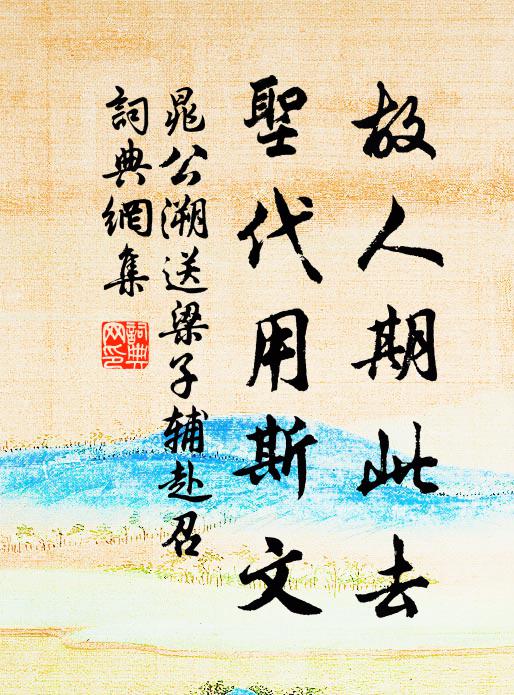 故人期此去
聖代用斯文
晁公溯送梁子輔赴召
詞典網集
詞典
网印